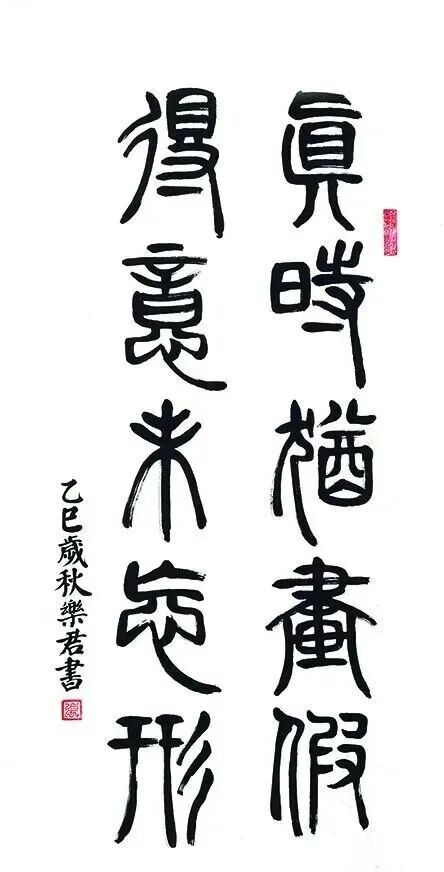 真時猶畫假
得意未忘形
乙巳歲秋樂君書